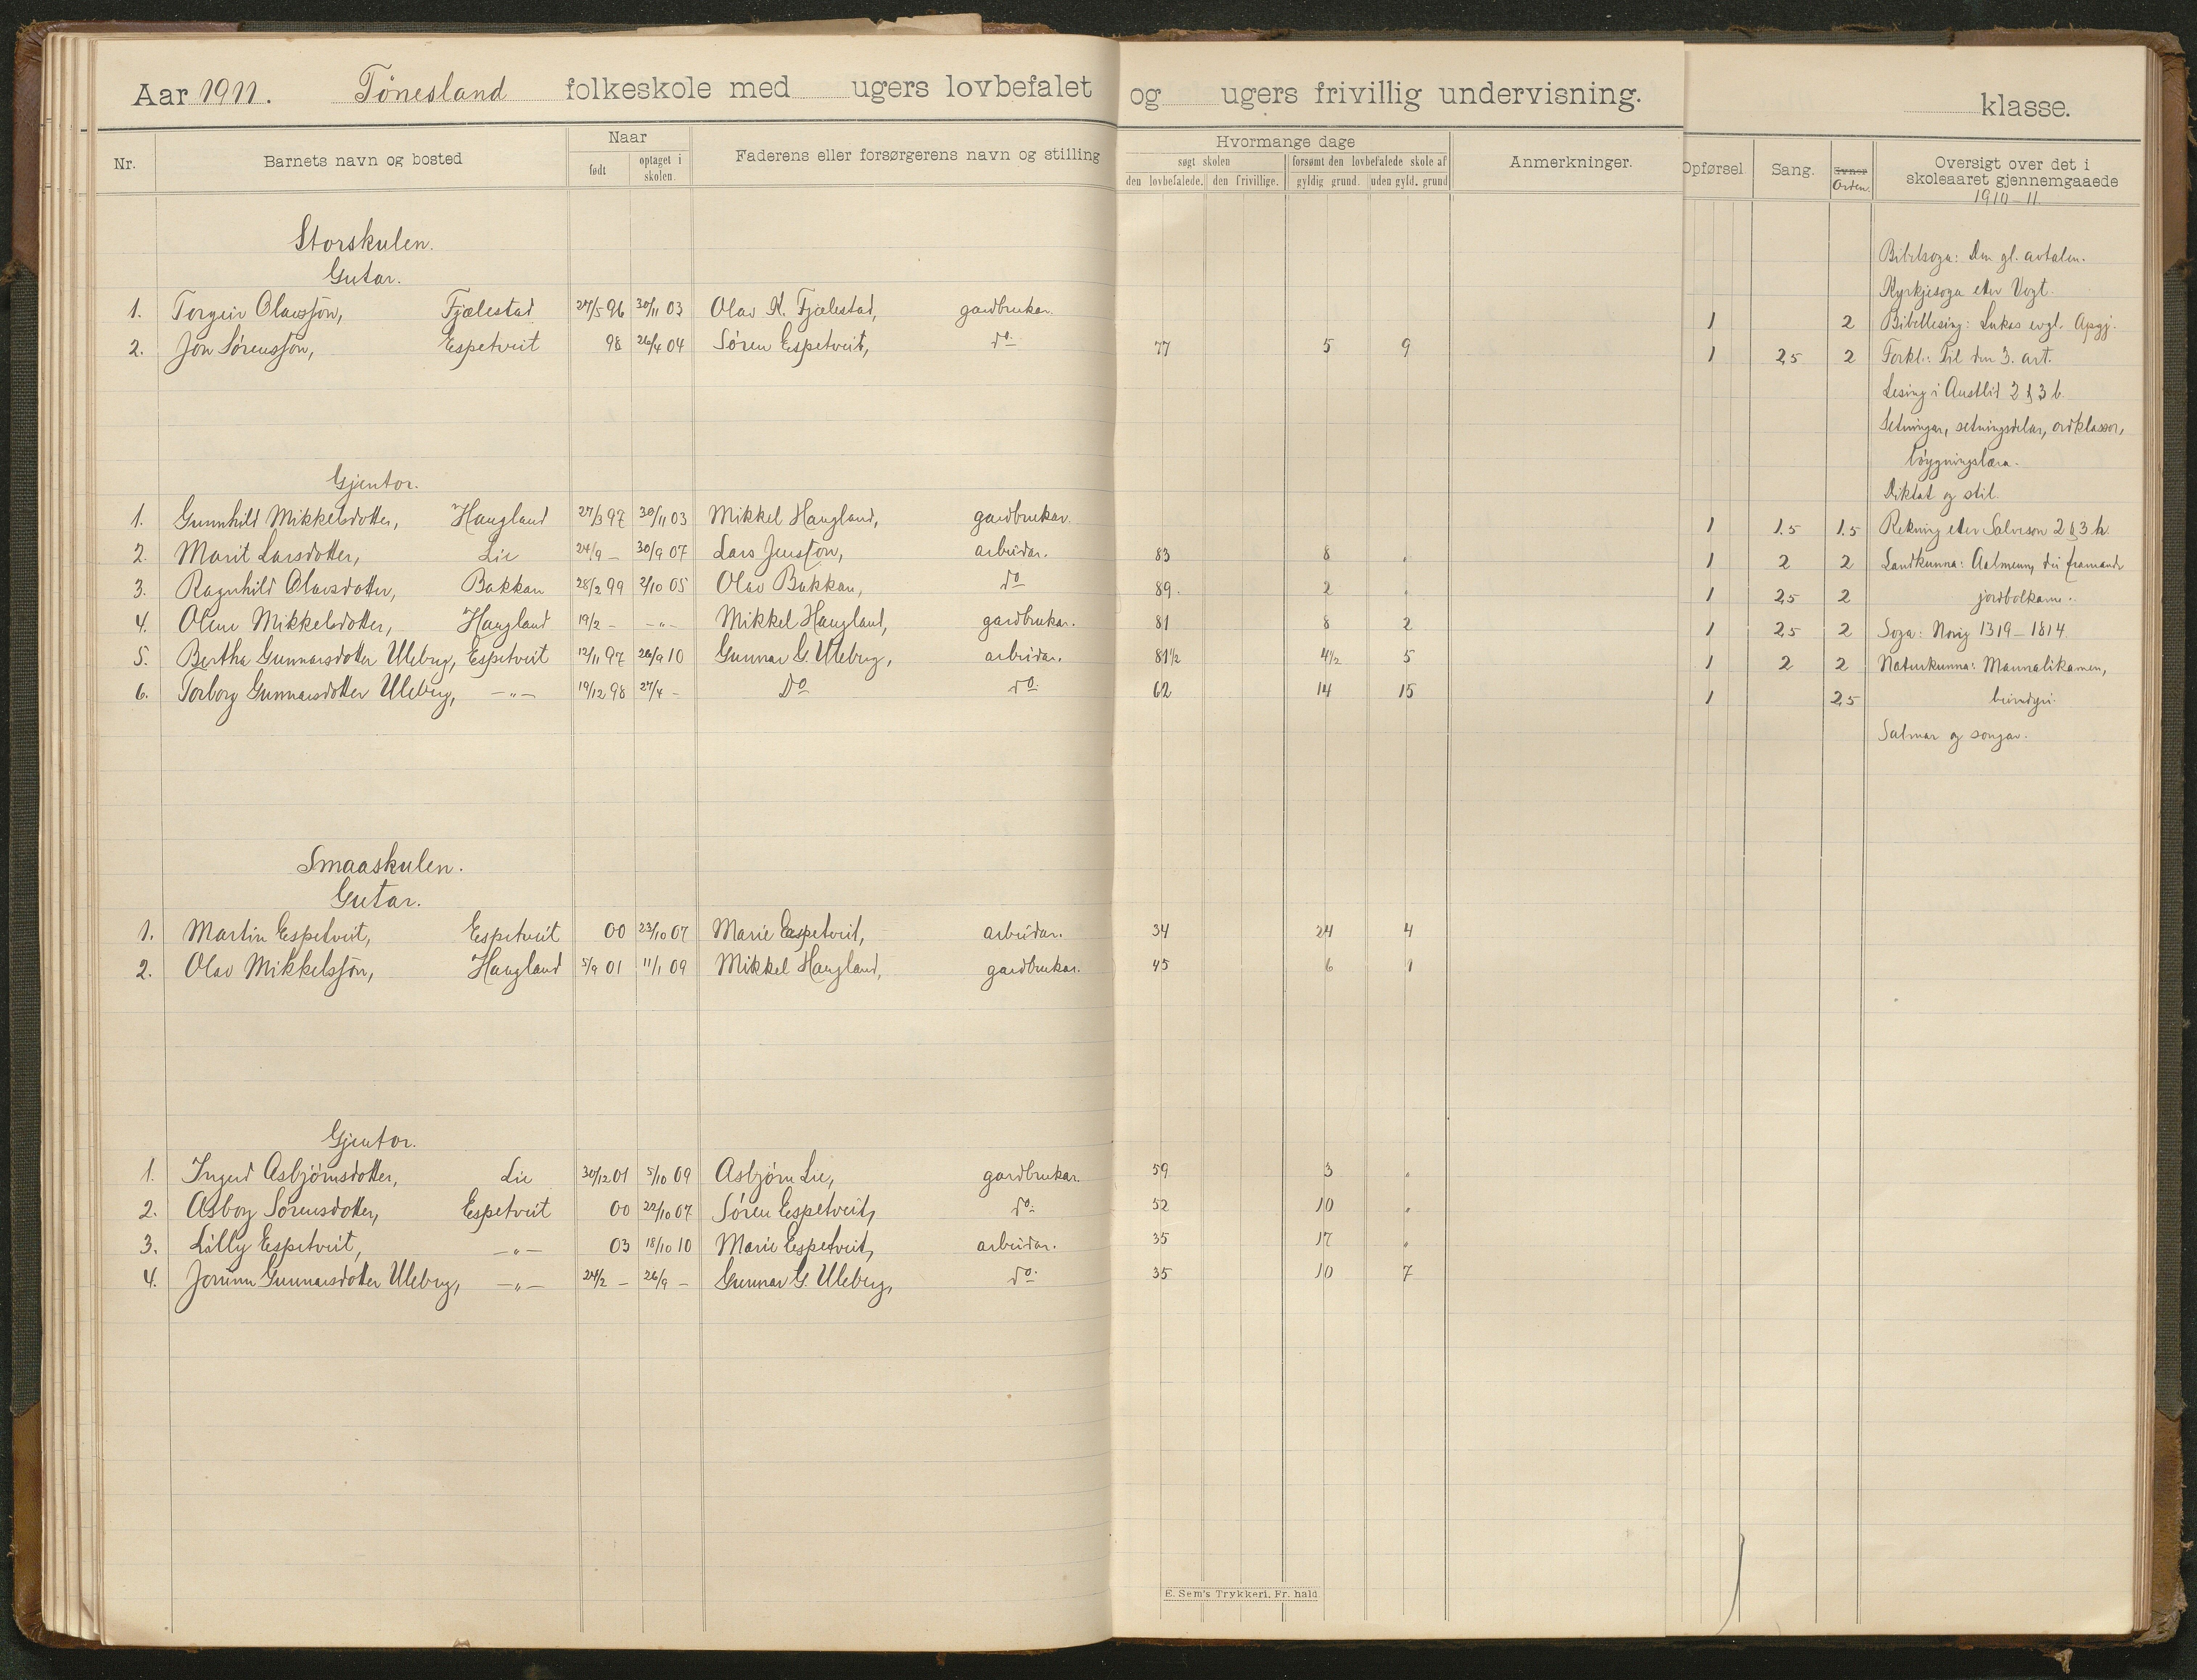 Aar 1911. Tønesland folkeskole med ugers lovbefalet og ugers frivillig undervisning. klasse.
Nr. Barnets navn og bosted Naar født optaget i skolen. Faderens eller forsørgerens navn og stilling Hvormange dage søgt skolen den lovbefalede. den frivillige. forsømt den lovbefalede skole af gyldig grund. uden gyld. grund Anmerkninger. Opførsel Sang. Evner Orden. Oversigt over det i skoleaaret gjennemgaaede 1910-11
Storskulen.
Gutar.
1. Torgeir Olavsson, Fjælestad 27/5 96 30/11 03 Olav K. Fjælestad, gardbrukar. 1 2
2. Jon Sørensson, Espetveit 98 26/4 04 Søren Espetveit, do. 77 5 9 1 2,5 2
Gjentor.
1. Gunnhild Mikkelsdotter, Haugland 27/3 97 30/11 03 Mikkel Haugland, gardbrukar. 1 1.5 1.5
2. Marit Larsdotter, Lie 24/9 — 30/9 07 Lars Jensson, arbeidar. 83 8 „ 1 2 2
3. Ragnhild Olavsdotter, Bakkan 28/2 99 2/10 05 Olav Bakkan, do 89. 2 „ 1 2,5 2
4. Olene Mikkelsdotter, Haugland 19/2 — —„— Mikkel Haugland, gardbrukar. 81 8 2 1 2,5 2
5. Bertha Gunnarsdotter Uleberg, Espetveit 12/11 97 26/9 10 Gunnar G. Uleberg, arbeidar. 81 1/2 4 1/2 5 1 2 2
6. Torborg Gunnarsdotter Uleberg, —„— 19/12 98 27/4 — Do do. 62 14 15 1 2,5
Smaaskulen.
Gutar.
1. Martin Espetveit, Espetveit 00 23/10 07 Marie Espetveit, arbeidar. 34 24 4
2. Olav Mikkelsson, Haugland 5/9 01 11/1 09 Mikkel Haugland, gardbrukar. 45 6 1
Gjentor.
1. Ingerd Asbjørnsdotter, Lie 30/12 01 5/10 09 Asbjørn Lie, gardbrukar. 59 3 „
2. Asborg Sørensdotter, Espetveit 00 22/10 07 Søren Espetveit, do. 52 10 „
3. Lilly Espetveit, —„— 03 18/10 10 Marie Espetveit, arbeidar. 35 17 „
4. Jorunn Gunnarsdotter Uleberg, —„— 24/2 — 26/9 — Gunnar G. Uleberg, do. 35 10 7
Bibelsoga: Den gl. avtalen.
Kyrkjesoga etter Vogt.
Bibellesing: Lukas evgl. Apgj.
Forkl.: Til den 3. art.
Lesing i Austlid 2 & 3 b.
Setningar, setningsdelar, ordklassor,
bøygningslæra.
Diktat og stil.
Rekning etter Salveson 2 & 3 h.
Landkunna: Aalmenn, dei framande
jordbolkane.
Soga: Norig 1319–1814.
Naturkunna: Mannalikamen,
beindyri.
Salmar og songar.
E. Sem's Trykkeri, Fr. hald